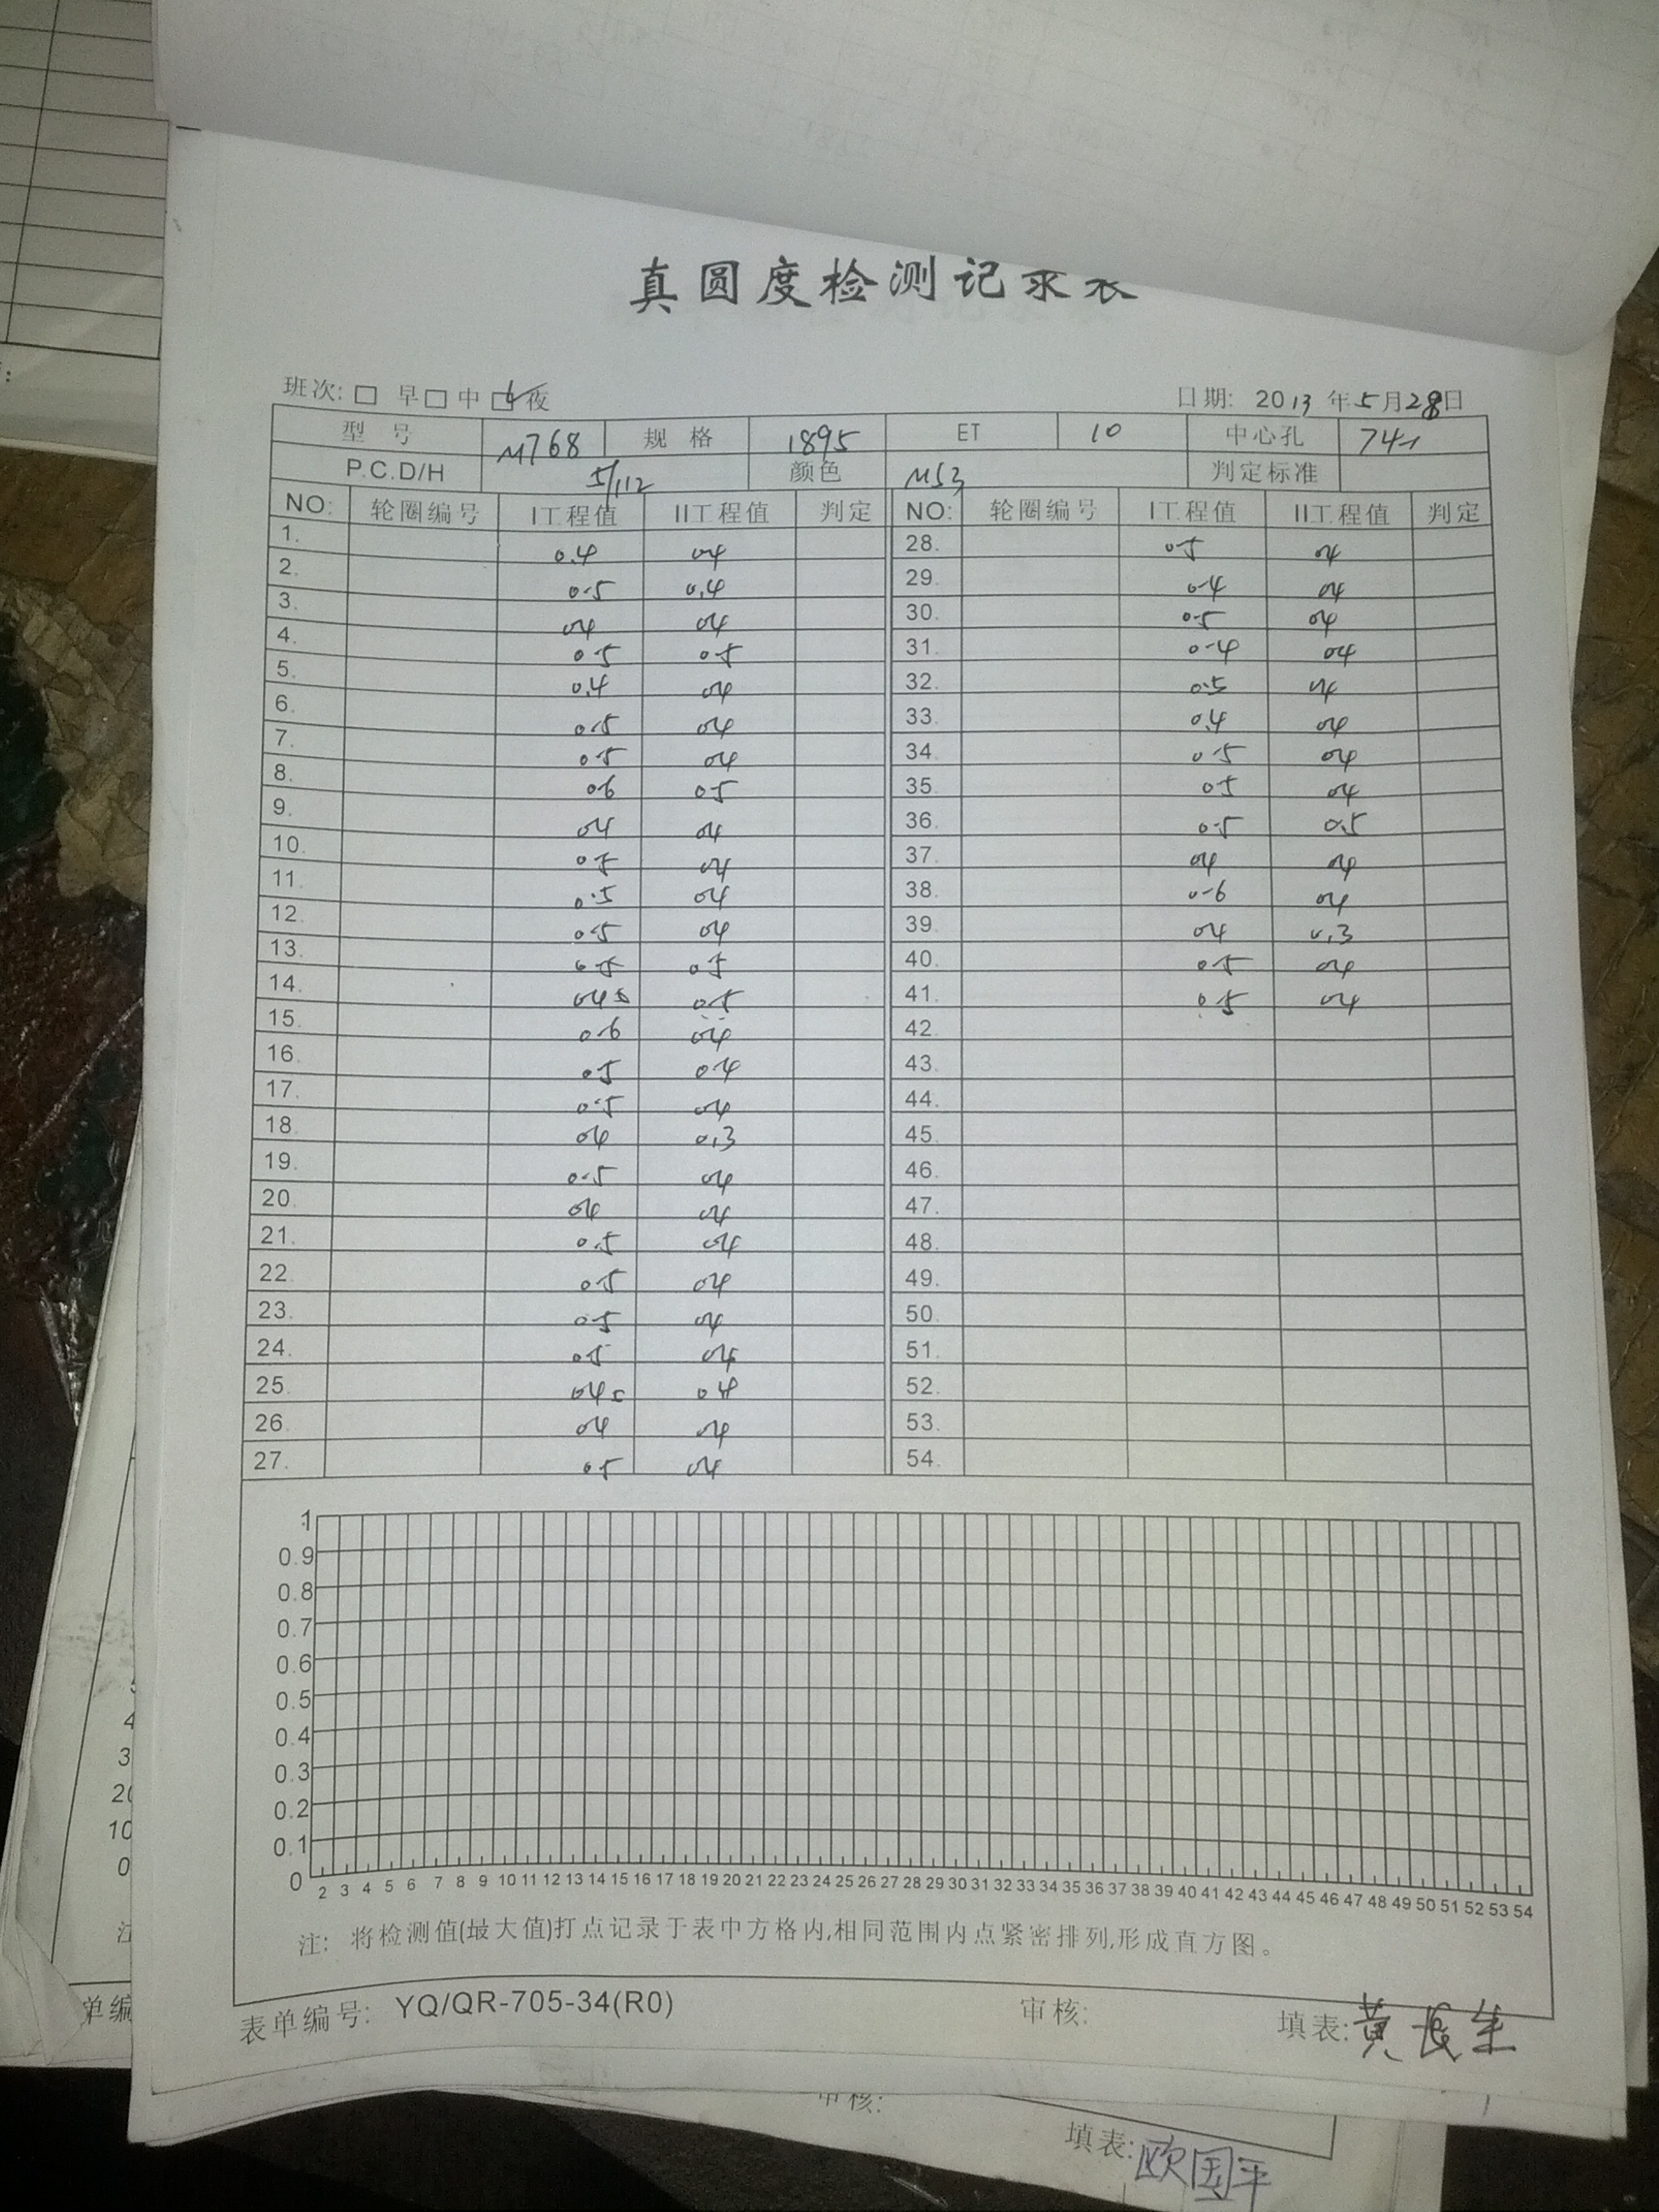 真圆度检测记录表
班次: □ 早 □ 中 □ 夜 日期: 2013 年 5 月 28 日
型 号 M768 规 格 1895 ET 10 中心孔 741
P.C.D/H 5/112 颜色 M53 判定标准
NO: 轮圈编号 I工程值 II工程值 判定 NO: 轮圈编号 I工程值 II工程值 判定
1. 0.4 04 28. 0.5 04
2. 0.5 0.4 29. 0.4 04
3. 04 04 30. 0.5 04
4. 0.5 0.5 31. 0.4 04
5. 0.4 04 32. 0.5 04
6. 0.5 04 33. 0.4 04
7. 0.5 04 34. 0.5 04
8. 06 05 35. 05 04
9. 04 04 36. 0.5 0.5
10. 0.5 04 37. 04 04
11. 0.5 04 38. 0.6 04
12. 0.5 04 39. 04 0.3
13. 0.5 0.5 40. 0.5 04
14. 045 0.5 41. 0.5 04
15. 0.6 04 42.
16. 05 0.4 43.
17. 0.5 04 44.
18. 04 0.3 45.
19. 0.5 04 46.
20. 04 04 47.
21. 0.5 04 48.
22. 0.5 04 49.
23. 0.5 04 50.
24. 05 04 51.
25. 045 04 52.
26. 04 04 53.
27. 05 04 54.
1
0.9
0.8
0.7
0.6
0.5
0.4
0.3
0.2
0.1
0 2 3 4 5 6 7 8 9 10 11 12 13 14 15 16 17 18 19 20 21 22 23 24 25 26 27 28 29 30 31 32 33 34 35 36 37 38 39 40 41 42 43 44 45 46 47 48 49 50 51 52 53 54
注: 将检测值(最大值)打点记录于表中方格内,相同范围内点紧密排列,形成直方图。
表单编号: YQ/QR-705-34(R0) 审核: 填表: 黄长生
审核:
填表: 欧国平